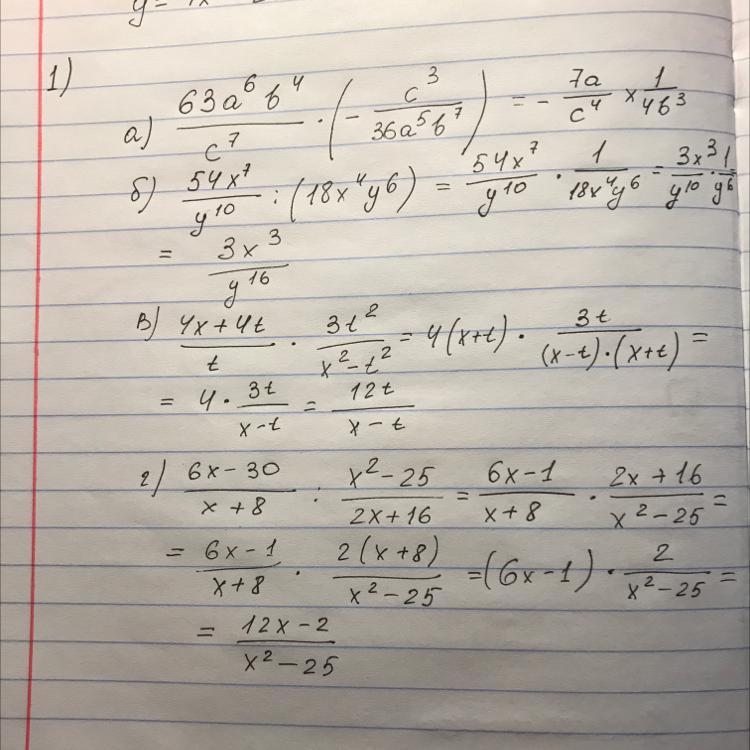 1)
а) \frac{63a^6 b^4}{c^7} \cdot \left(-\frac{c^3}{36a^5b^7}\right) = -\frac{7a}{c^4} \times \frac{1}{4b^3}
б) \frac{54x^7}{y^{10}} : (18x^4y^6) = \frac{54x^7}{y^{10}} \cdot \frac{1}{18x^4y^6} = \frac{3x^3}{y^{10}} \cdot \frac{1}{y^6}
= \frac{3x^3}{y^{16}}
в) \frac{4x+4t}{t} \cdot \frac{3t^2}{x^2-t^2} = 4(x+t) \cdot \frac{3t}{(x-t) \cdot (x+t)} =
= 4 \cdot \frac{3t}{x-t} = \frac{12t}{x-t}
г) \frac{6x-30}{x+8} : \frac{x^2-25}{2x+16} = \frac{6x-1}{x+8} \cdot \frac{2x+16}{x^2-25} =
= \frac{6x-1}{x+8} \cdot \frac{2(x+8)}{x^2-25} = (6x-1) \cdot \frac{2}{x^2-25} =
= \frac{12x-2}{x^2-25}